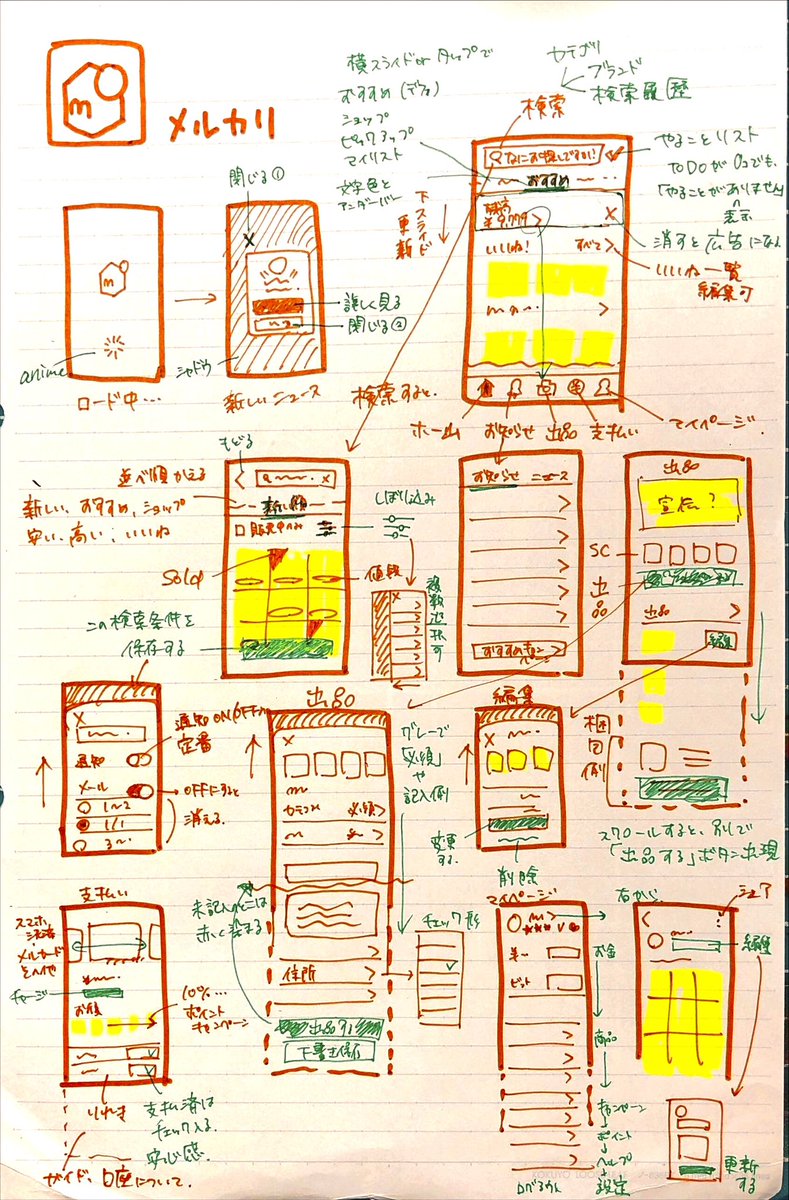 m
メルカリ
横スライド or タップで
おすすめ (デフォ)
ショップ
ピックアップ
マイリスト
文字色と
アンダーバー
カテゴリ
ブランド
検索履歴
検索
なにをお探しですか?
おすすめ
残高
¥9,779
いいね!
すべて
やることリスト
ToDoが0コでも、
「やることがありません」
表示
消すと広告になる
いいね一覧
編集可
下スライド
更新
閉じる①
m
詳しく見る
閉じる②
anime
シャドウ
ロード中…
新しいニュース
検索すると、
ホーム
お知らせ
出品
支払い
マイページ
もどる
並べ順かえる
新しい、おすすめ、ショップ
安い、高い、いいね
新しい順
販売中のみ
しぼり込み
Sold
値段
複数選択可
この検索条件を
保存する
お知らせ
ニュース
出品
宣伝?
SC
出品
出品
編集
梱包
例
スクロールすると、別で
「出品する」ボタン出現
通知 ON/OFFの
定番
通知
メール
1〜2
1/1
3〜
OFFにすると
消える
出品
カテゴリ
必須
グレーで
「必須」や
記入例
未記入のとこは
赤く染まる
住所
出品する
下書き保存
チェック形
編集
変更
する
削除
支払い
スマホ
決済
・メルカード
チャージ
お得
10%…
ポイント
キャンペーン
りれき
支払済は
チェック入る。
安心感。
ガイド、口座について。
マイページ
お金
商品
キャンペーン
ポイント
ヘルプ
設定
ログアウト
右から
シェア
編集
更新
する